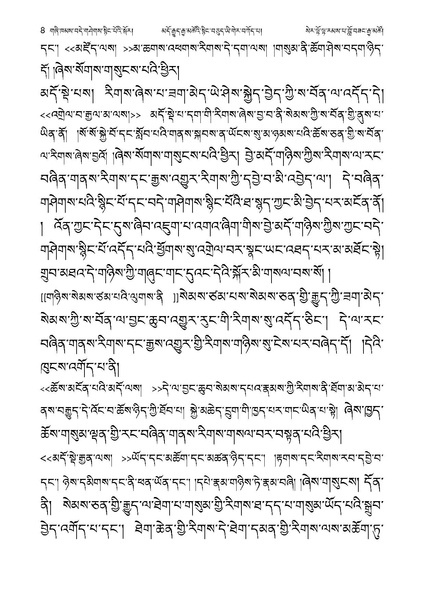 8 གཉི་ཁམས་བདེ་གཤེགས་སྙིང་པོའི་སྐོར། མདོ་རྒྱུད་རྒྱ་མཚོའི་སྙིང་བཅུད་ཡི་གེར་བཀོད་པ། སེར་
དང་། <<མཛོད་ལས། >>མ་ཆགས་འཕགས་རིགས་དེ་དག་ལས། །གསུམ་ནི་ཆོག་ཤེས་བདག་ཉིད་
དོ། །ཞེས་སོགས་གསུངས་པའི་ཕྱིར།
མདོ་སྡེ་པས། རིགས་ཞེས་པ་ཟག་མེད་ཡེ་ཤེས་སྐྱེད་བྱེད་ཀྱི་ས་བོན་ལ་འདོད་དེ།
<<འགྲེལ་བ་རྒྱལ་མ་ལས།>> མདོ་སྡེ་པ་དག་གི་རིགས་ཞེས་བྱ་བ་ནི་སེམས་ཀྱི་ས་བོན་གྱི་ནུས་པ་
ཡིན་ནོ། །སོ་སོ་སྐྱེ་བོ་དང་སློབ་པའི་གནས་སྐབས་ན་ཡོངས་སུ་མ་ཉམས་པའི་ཆོས་ཅན་གྱི་ས་བོན་
ལ་རིགས་ཞེས་བྱའོ། །ཞེས་སོགས་གསུངས་པའི་ཕྱིར། བྱེ་མདོ་གཉིས་ཀྱིས་རིགས་ལ་རང་
བཞིན་གནས་རིགས་དང་རྒྱས་འགྱུར་རིགས་ཀྱི་དབྱེ་བ་མི་འབྱེད་ལ། དེ་བཞིན་
གཤེགས་པའི་སྙིང་པོ་དང་བདེ་གཤེགས་སྙིང་པོའི་ཐ་སྙད་ཀྱང་མི་བྱེད་པར་མངོན་ནོ།
། འོན་ཀྱང་དེང་དུས་ཞིབ་འཇུག་པ་འགའ་ཞིག་གིས་བྱེ་མདོ་གཉིས་ཀྱིས་ཀྱང་བདེ་
གཤེགས་སྙིང་པོ་འདོད་པའི་ཕྱོགས་སུ་འགྲེལ་བར་སྣང་ཡང་འཐད་པར་མ་མཐོང་སྟེ།
གྲུབ་མཐའ་དེ་གཉིས་ཀྱི་གཞུང་གང་དུའང་དེའི་སྐོར་མི་གསལ་བས་སོ། །
[[གཉིས་སེམས་ཙམ་པའི་ལུགས་ནི ]]སེམས་ཙམ་པས་སེམས་ཅན་གྱི་རྒྱུད་ཀྱི་ཟག་མེད་
སེམས་ཀྱི་ས་བོན་ལ་བྱང་ཆུབ་འགྱུར་རུང་གི་རིགས་སུ་འདོད་ཅིང་། དེ་ལ་རང་
བཞིན་གནས་རིགས་དང་རྒྱས་འགྱུར་གྱི་རིགས་གཉིས་སུ་ངེས་པར་བཞེད་དོ། །དེའི་
ཁུངས་འགོད་པ་ནི།
<<ཆོས་མངོན་པའི་མདོ་ལས། >>དེ་ལ་བྱང་ཆུབ་སེམས་དཔའ་རྣམས་ཀྱི་རིགས་ནི་ཐོག་མ་མེད་པ་
ནས་བརྒྱུད་དེ་འོང་བ་ཆོས་ཉིད་ཀྱི་ཐོབ་པ། སྐྱེ་མཆེད་དྲུག་གི་ཁྱད་པར་གང་ཡིན་པ་སྟེ། ཞེས་ཁྱད་
ཆོས་གསུམ་ལྡན་གྱི་རང་བཞིན་གནས་རིགས་གསལ་བར་བསྟན་པའི་ཕྱིར།
<<མདོ་སྡེ་རྒྱན་ལས། >>ཡོད་དང་མཆོག་དང་མཚན་ཉིད་དང་། །རྟགས་དང་རིགས་རབ་དབྱེ་བ་
དང་། ཉེས་དམིགས་དང་ནི་ཕན་ཡོན་དང་། །དཔེ་རྣམ་གཉིས་ཏེ་རྣམ་བཞི། །ཞེས་གསུངས། དོན་
ནི། སེམས་ཅན་གྱི་རྒྱུད་ལ་ཐེག་པ་གསུམ་གྱི་རིགས་ཐ་དད་པ་གསུམ་ཡོད་པའི་སྒྲུབ་
བྱེད་འགོད་པ་དང་། ཐེག་ཆེན་གྱི་རིགས་དེ་ཐེག་དམན་གྱི་རིགས་ལས་མཆོག་ཏུ་